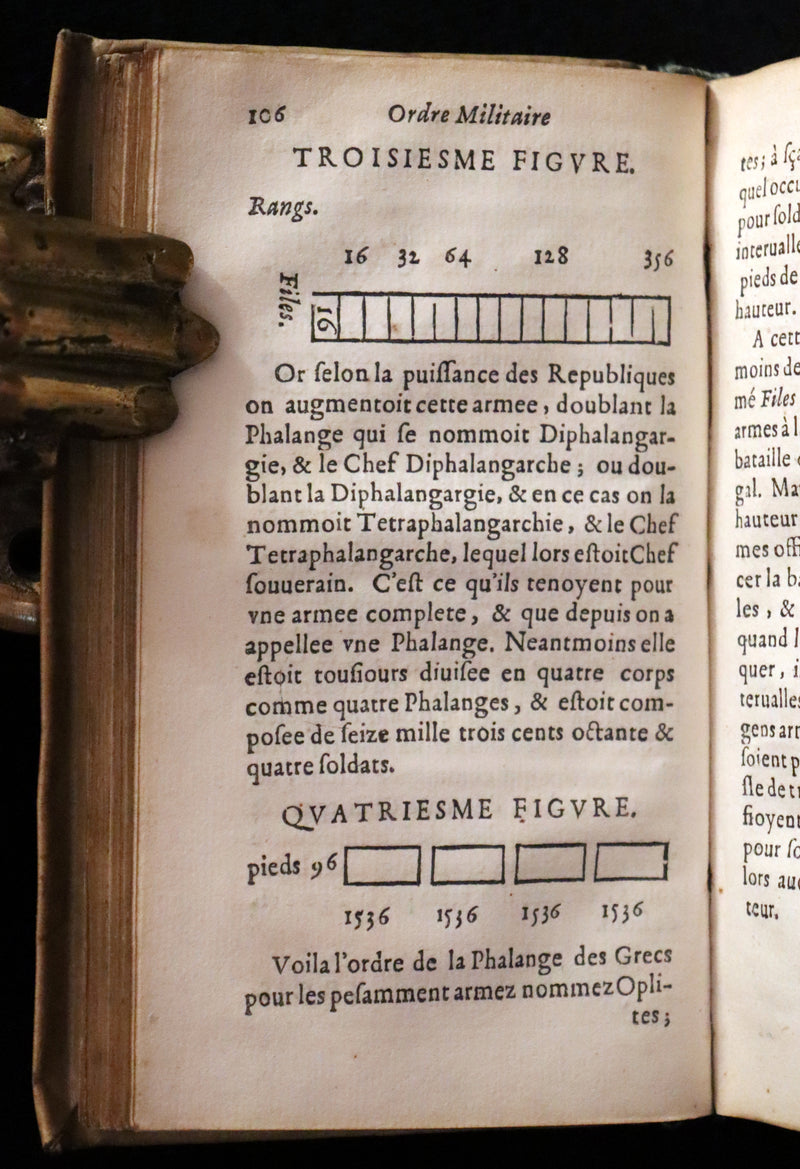 106 Ordre Militaire
TROISIESME FIGVRE.
Rangs.
16 32 64 128 356
Files.
16
Or ſelon la puiſſance des Republiques
on augmentoit cette armee, doublant la
Phalange qui ſe nommoit Diphalangar-
gie, & le Chef Diphalangarche ; ou dou-
blant la Diphalangargie, & en ce cas on la
nommoit Tetraphalangarchie, & le Chef
Tetraphalangarche, lequel lors eſtoit Chef
ſouuerain. C'eſt ce qu'ils tenoyent pour
vne armee complete, & que depuis on a
appellee vne Phalange. Neantmoins elle
eſtoit touſiours diuiſee en quatre corps
comme quatre Phalanges, & eſtoit com-
poſee de ſeize mille trois cents octante &
quatre ſoldats.
QVATRIESME FIGVRE.
pieds 96
1536 1536 1536 1536
Voila l'ordre de la Phalange des Grecs
pour les peſamment armez nommez Opli-
tes ;
tes; à
quel
pour
pieds de
hauteur.
A cett
moins de
mé Files
armes à l
bataille
gal. Ma
hauteur
mes offi
cer la b
les, &
quand
quer, i
teruelles
gens arr
ſoient p
ſle de t
fioyent
pour ſo
lors au
teur.